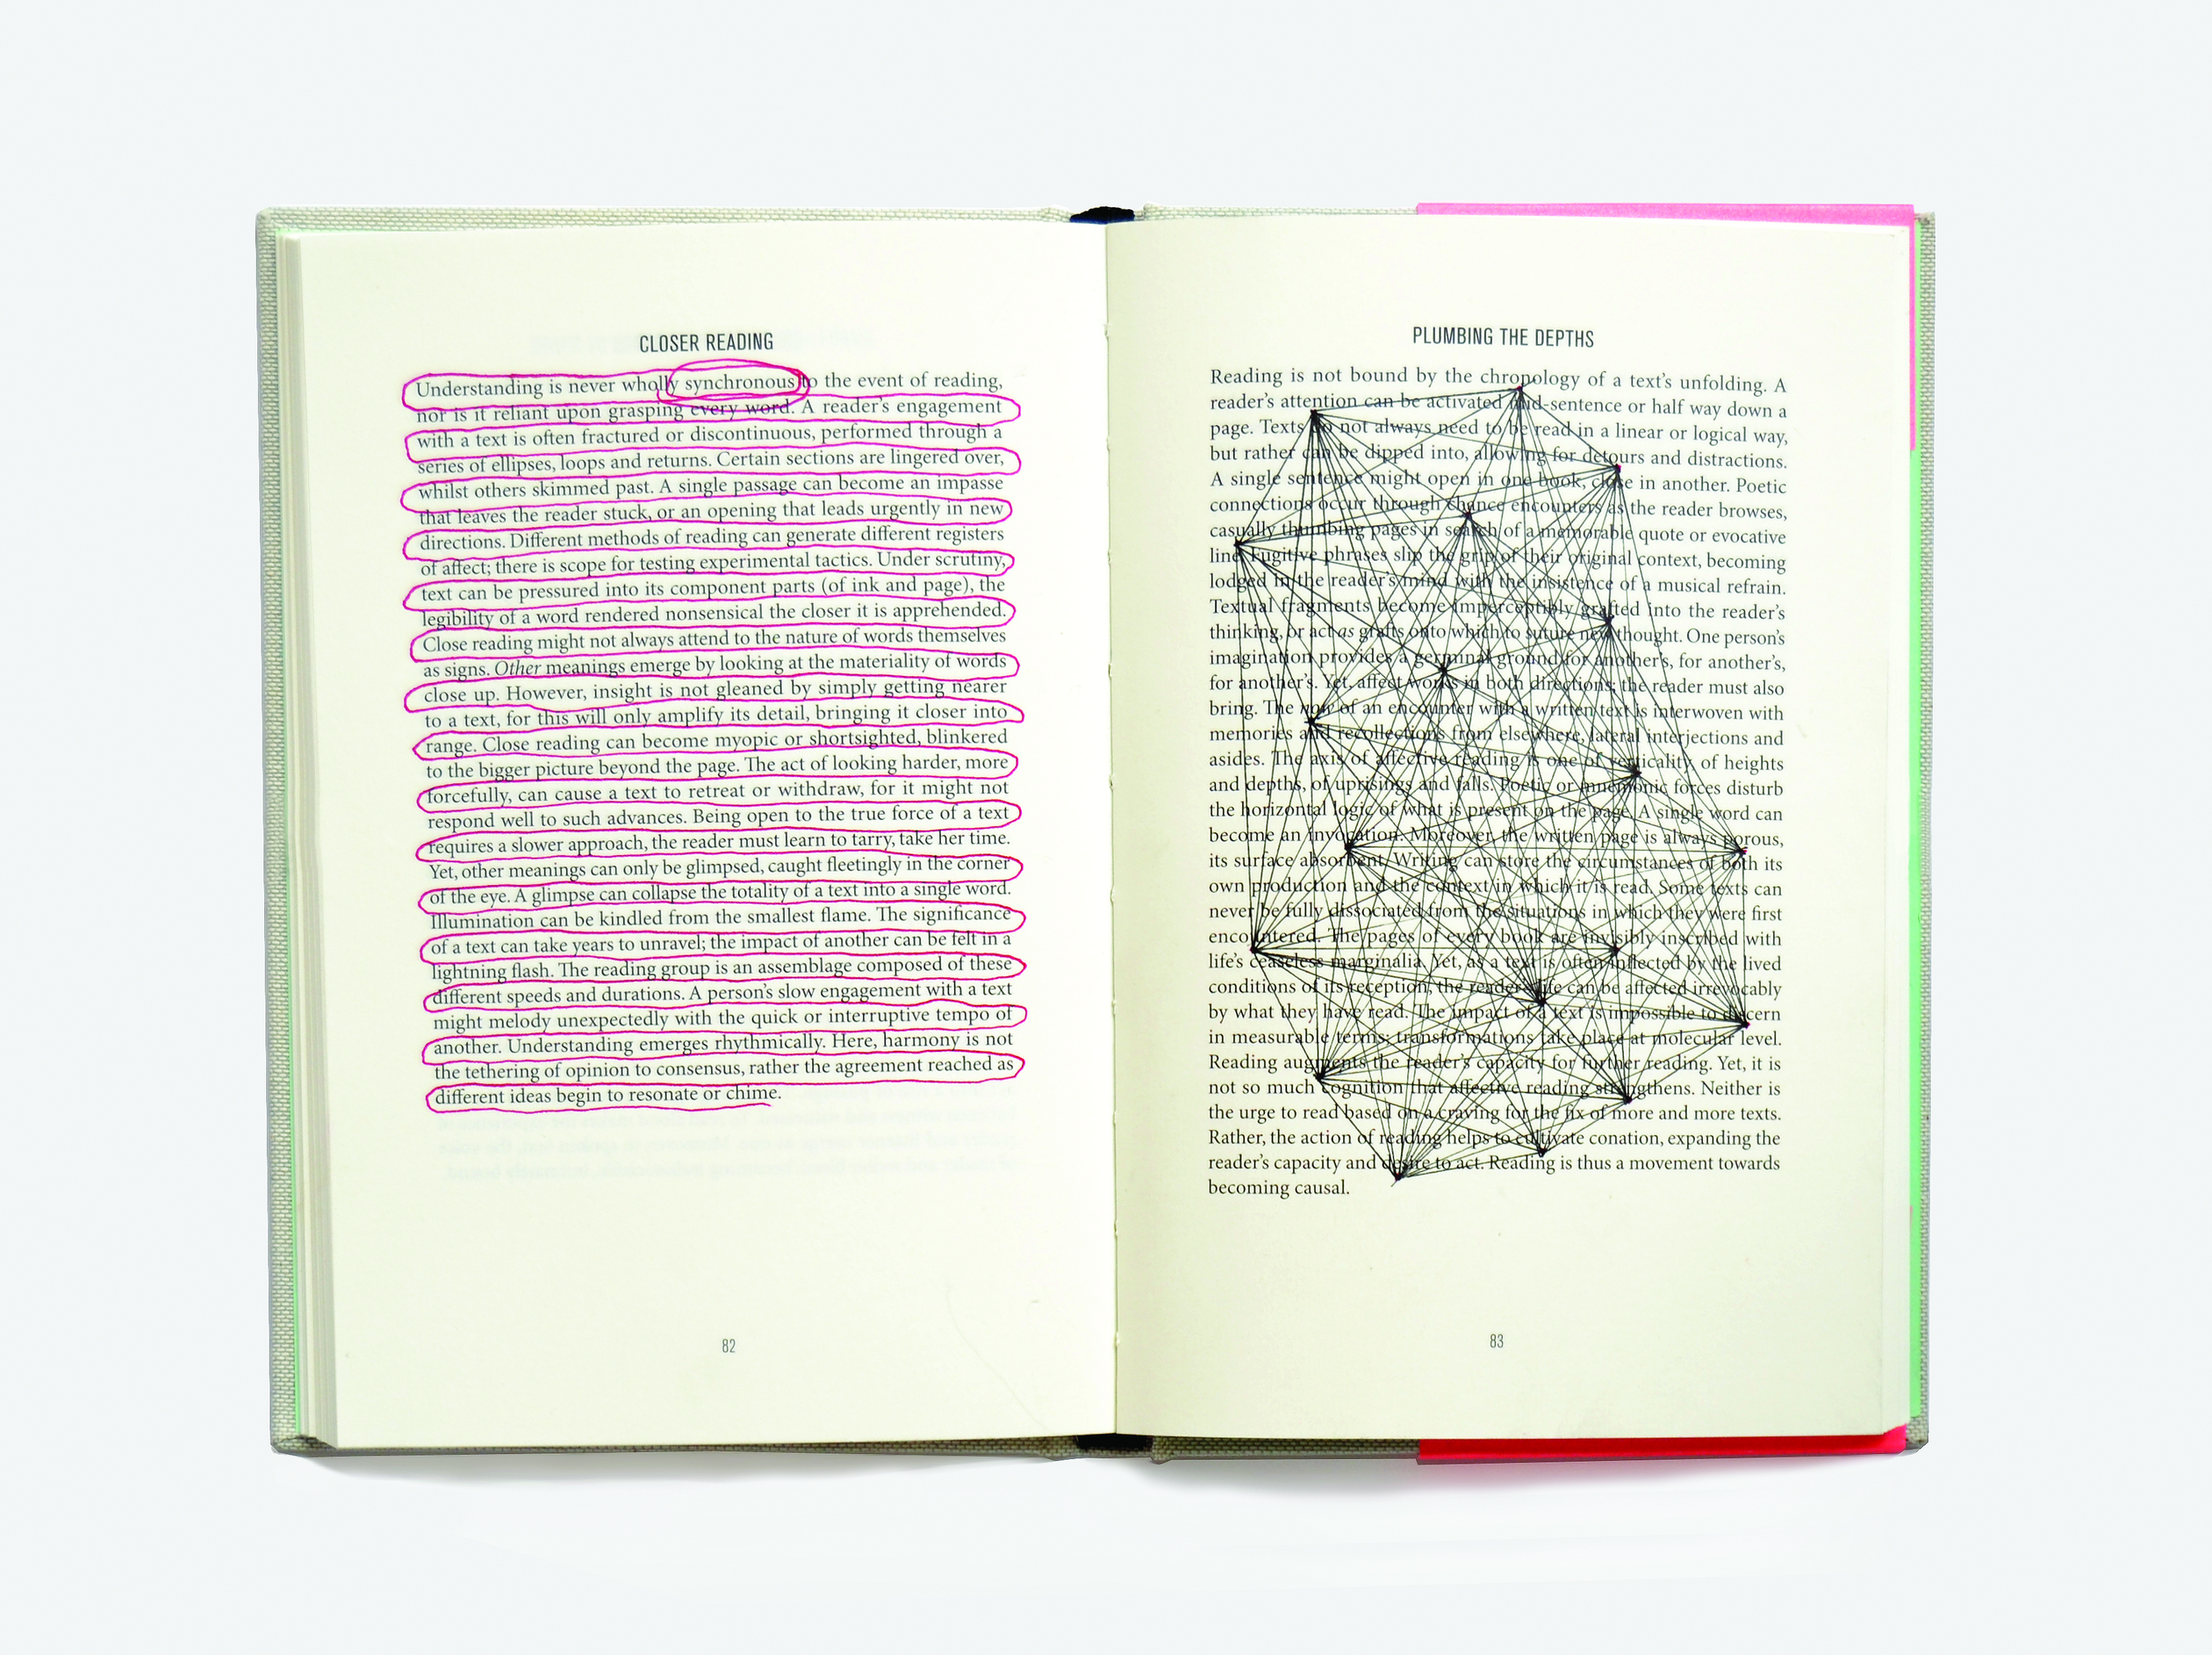 CLOSER READING
Understanding is never wholly synchronous to the event of reading,
nor is it reliant upon grasping every word. A reader's engagement
with a text is often fractured or discontinuous, performed through a
series of ellipses, loops and returns. Certain sections are lingered over,
whilst others skimmed past. A single passage can become an impasse
that leaves the reader stuck, or an opening that leads urgently in new
directions. Different methods of reading can generate different registers
of affect; there is scope for testing experimental tactics. Under scrutiny,
text can be pressured into its component parts (of ink and page), the
legibility of a word rendered nonsensical the closer it is apprehended.
Close reading might not always attend to the nature of words themselves
as signs. Other meanings emerge by looking at the materiality of words
close up. However, insight is not gleaned by simply getting nearer
to a text, for this will only amplify its detail, bringing it closer into
range. Close reading can become myopic or shortsighted, blinkered
to the bigger picture beyond the page. The act of looking harder, more
forcefully, can cause a text to retreat or withdraw, for it might not
respond well to such advances. Being open to the true force of a text
requires a slower approach, the reader must learn to tarry, take her time.
Yet, other meanings can only be glimpsed, caught fleetingly in the corner
of the eye. A glimpse can collapse the totality of a text into a single word.
Illumination can be kindled from the smallest flame. The significance
of a text can take years to unravel; the impact of another can be felt in a
lightning flash. The reading group is an assemblage composed of these
different speeds and durations. A person's slow engagement with a text
might melody unexpectedly with the quick or interruptive tempo of
another. Understanding emerges rhythmically. Here, harmony is not
the tethering of opinion to consensus, rather the agreement reached as
different ideas begin to resonate or chime.
82
PLUMBING THE DEPTHS
Reading is not bound by the chronology of a text's unfolding. A
reader's attention can be activated mid-sentence or half way down a
page. Texts do not always need to be read in a linear or logical way,
but rather can be dipped into, allowing for detours and distractions.
A single sentence might open in one book, close in another. Poetic
connections occur through chance encounters as the reader browses,
casually thumbing pages in search of a memorable quote or evocative
line. Fugitive phrases slip the grip of their original context, becoming
lodged in the reader's mind with the insistence of a musical refrain.
Textual fragments become imperceptibly grafted into the reader's
thinking, or act as grafts onto which to suture new thought. One person's
imagination provides a germinal ground for another's, for another's,
for another's. Yet, affect works in both directions; the reader must also
bring. The now of an encounter with a written text is interwoven with
memories and recollections from elsewhere, lateral interjections and
asides. The axis of affective reading is one of verticality, of heights
and depths, of uprisings and falls. Poetic or mnemonic forces disturb
the horizontal logic of what is present on the page. A single word can
become an invocation. Moreover, the written page is always porous,
its surface absorbent. Writing can store the circumstances of both its
own production and the context in which it is read. Some texts can
never be fully dissociated from the situations in which they were first
encountered. The pages of every book are invisibly inscribed with
life's ceaseless marginalia. Yet, as a text is often inflected by the lived
conditions of its reception, the reader's life can be affected irrevocably
by what they have read. The impact of a text is impossible to discern
in measurable terms; transformations take place at molecular level.
Reading augments the reader's capacity for further reading. Yet, it is
not so much cognition that affective reading strengthens. Neither is
the urge to read based on a craving for the fix of more and more texts.
Rather, the action of reading helps to cultivate conation, expanding the
reader's capacity and desire to act. Reading is thus a movement towards
becoming causal.
83